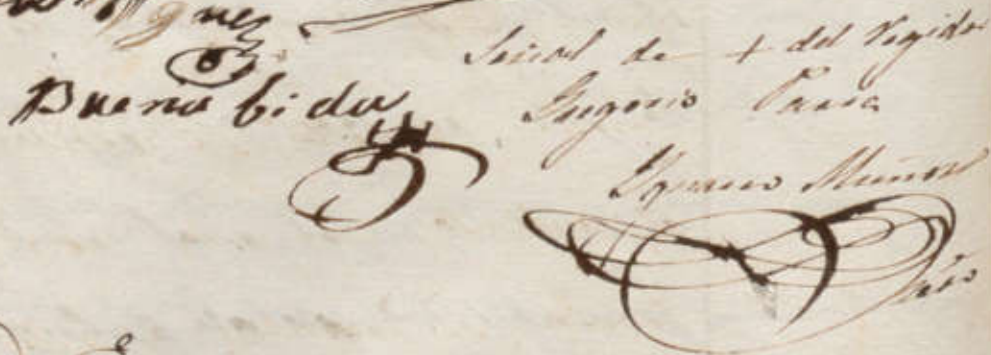 Buena bida
Señal de + del Regidor
Gregorio
Ygnacio Muñoz
Srio